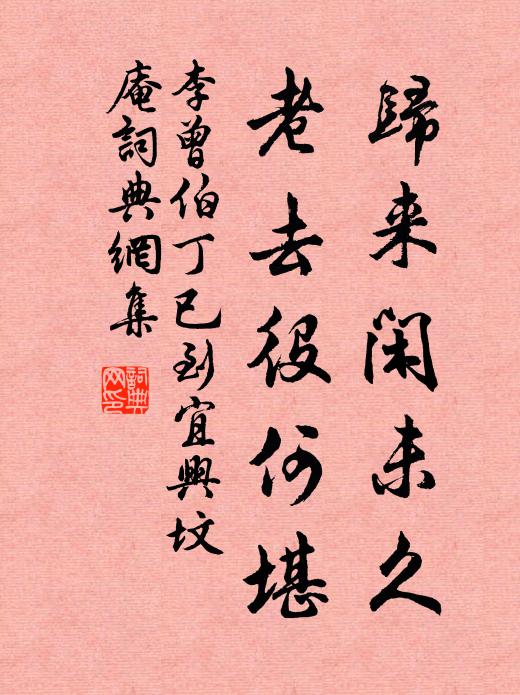 歸来閑未久
老去役何堪
李曾伯丁巳到宜興坟
庵詞典網集
詞典
网印